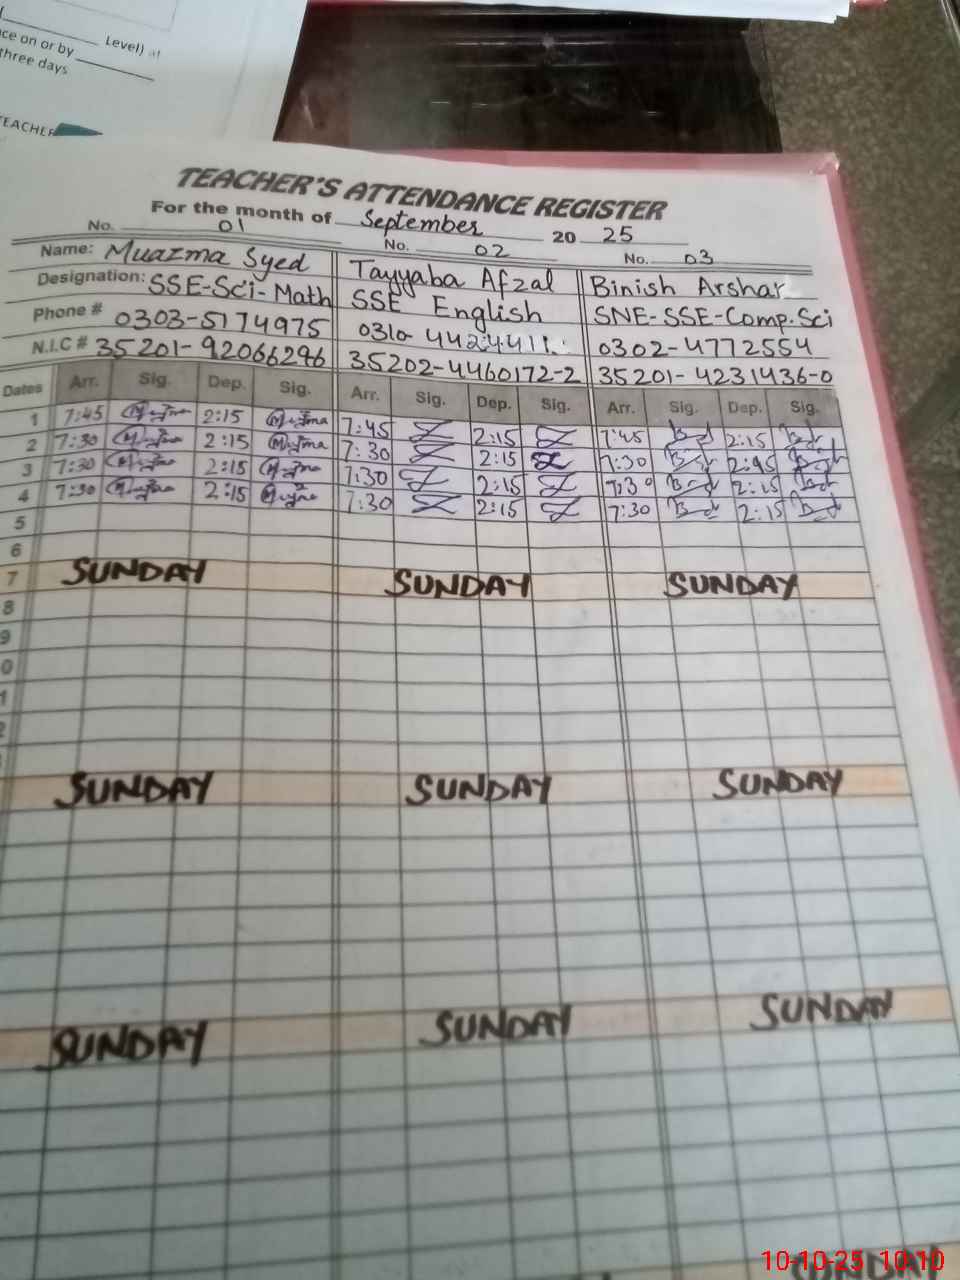 Level) at
ce on or by
three days
TEACHER
TEACHER'S ATTENDANCE REGISTER
For the month of September 20 25
No. 01 No. 02 No. 03
Name: Muazma Syed Tayyaba Afzal Binish Arshar
Designation: SSE-Sci-Math SSE English SNE-SSE-Comp.Sci
Phone # 0303-5174975 0310- 0302-4772554
N.I.C # 35201-92066296 35202-4460172-2 35201-4231436-0
Dates Arr. Sig. Dep. Sig. Arr. Sig. Dep. Sig. Arr. Sig. Dep. Sig.
1 7:45 2:15 7:45 2:15 7:45 2:15
2 7:30 2:15 7:30 2:15 7:30
3 7:30 2:15 7:30 2:15 7:30 2:15
4 7:30 2:15 7:30 2:15 7:30 2:15
5
6
7 SUNDAY SUNDAY SUNDAY
8
9
0
1
2
SUNDAY SUNDAY SUNDAY
SUNDAY SUNDAY SUNDAY
10-10-25 10:10